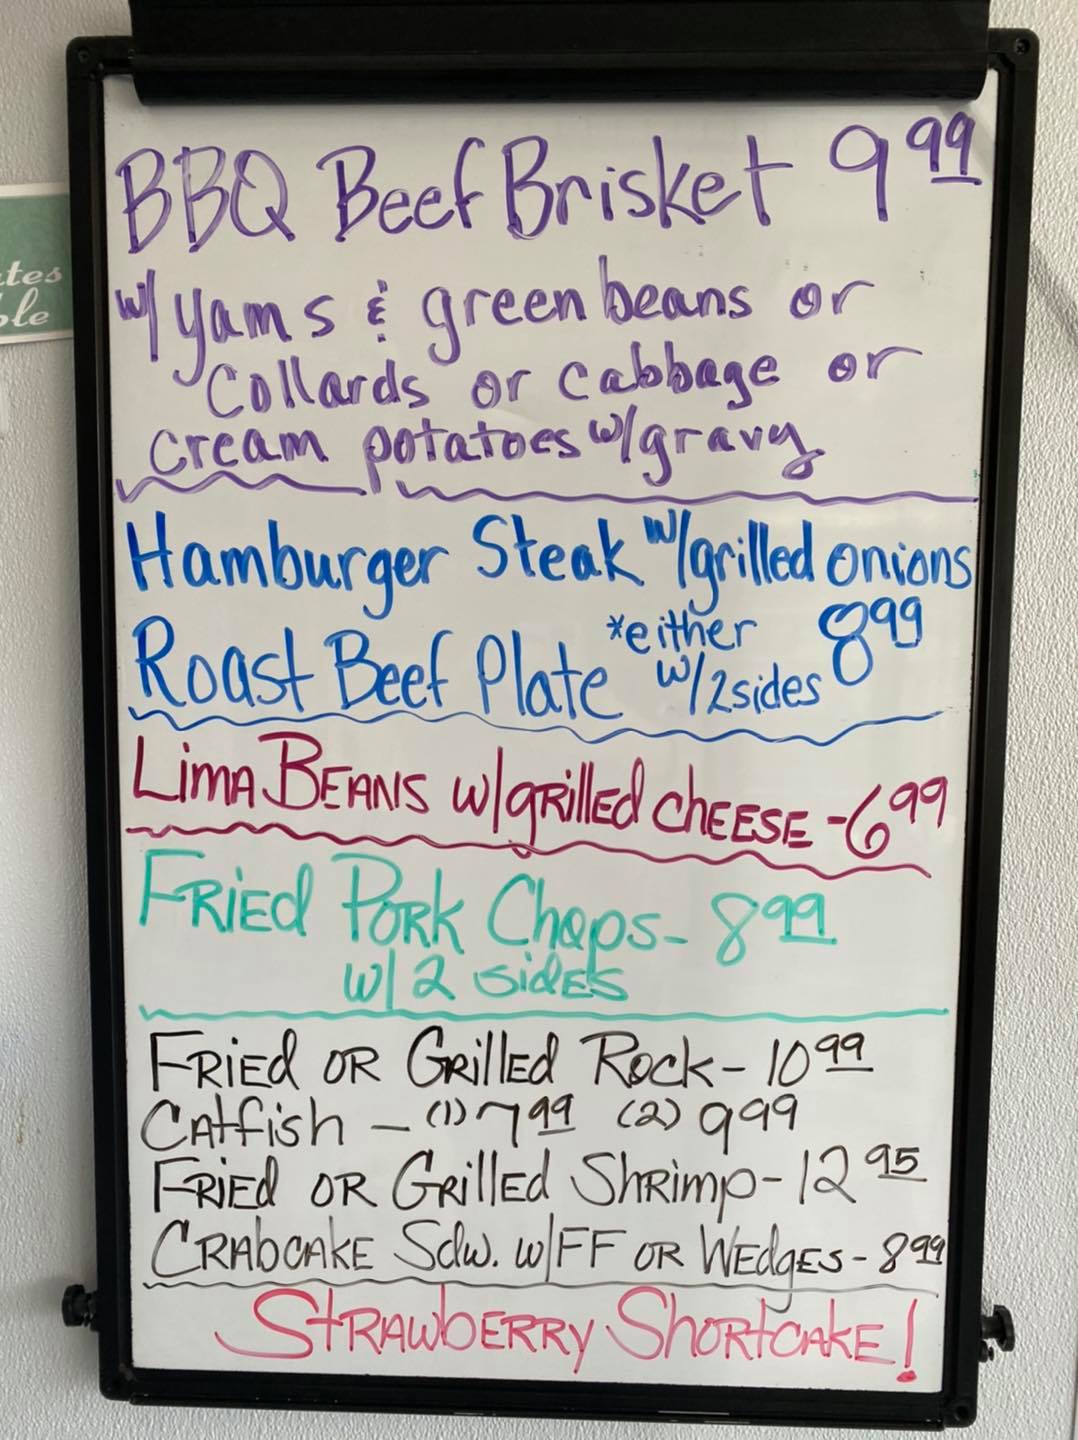 BBQ Beef Brisket 9 99
w/ yams & green beans or
collards or cabbage or
cream potatoes w/gravy
Hamburger Steak w/grilled onions
Roast Beef Plate *either w/2sides 8 99
Lima Beans w/grilled cheese - 6 99
Fried Pork Chops - 8 99
w/ 2 sides
Fried or Grilled Rock - 10 99
Catfish - (1) 7 99 (2) 9 99
Fried or Grilled Shrimp - 12 95
Crabcake Sdw. w/FF or Wedges - 8 99
Strawberry Shortcake!